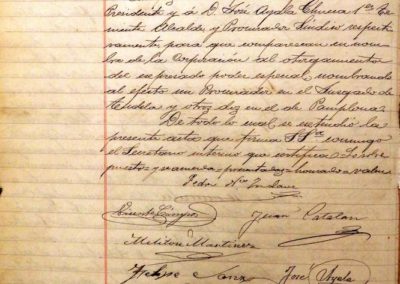 Presidente y á D. José Ayala Chueca 1er Te-
niente Alcalde y Procurador Síndico respecti-
vamente, para que comparezcan en nom-
bre de la Corporación al otorgamiento
del expresado poder especial, nombrando
al efecto un Procurador en el Juzgado de
Tudela y otros dos en el de Pamplona.
De todo lo cual se extendió la
presente acta que firma SSria conmigo
el Secretario interino que certifico =
puesto = y =
Pedro
Vicente Crespo Juan Catalan
Meliton Martinez
Felipe Sanz José Ayala